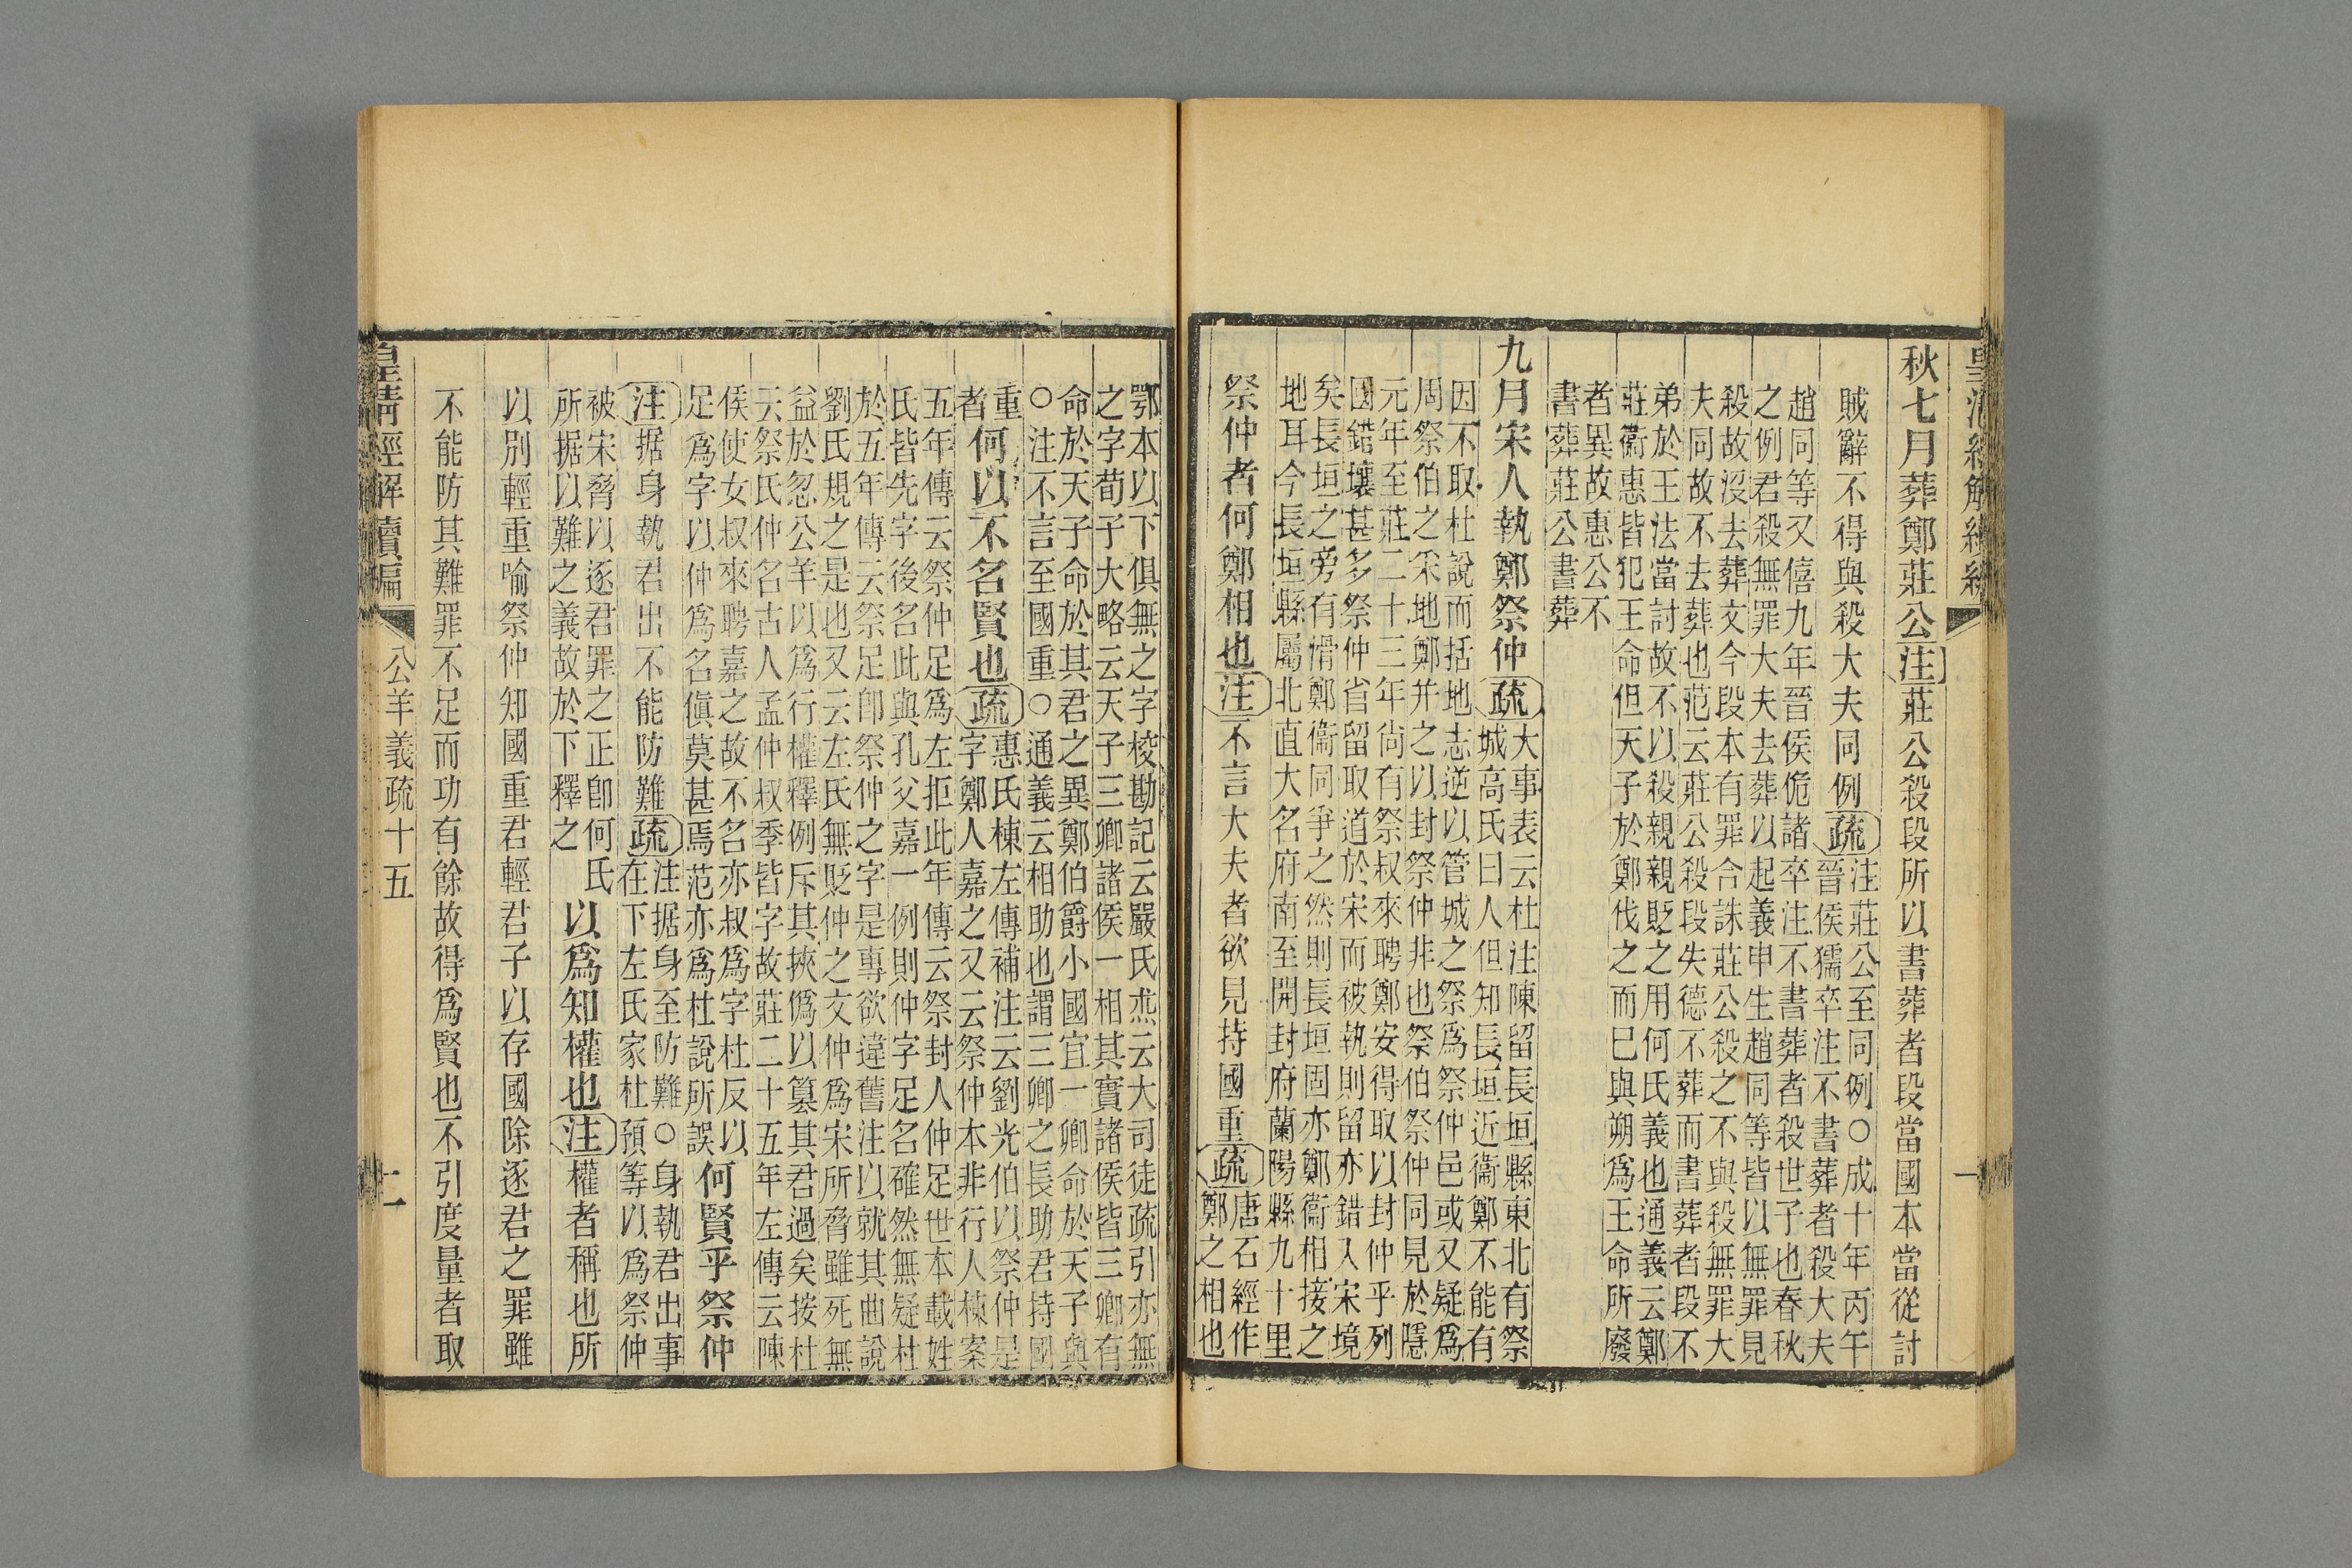 秋七月葬鄭莊公注莊公殺段所以書葬者段當國本當從討
賊辭不得與殺大夫同例疏
注莊公至同例○成十年丙午
晉侯獳卒注不書葬者殺大夫
趙同等又僖九年晉侯佹諸卒注不書葬者殺世子也春秋
之例君殺無罪大夫去葬以起義申生趙同等皆以無罪見
殺故沒去葬文今段本有罪合誅莊公殺之不與殺無罪大
夫同故不去葬也范云莊公殺段失德不葬而書葬者段不
弟於王法當討故不以殺親親貶之用何氏義也通義云鄭
莊衞惠皆犯王命但天子於鄭伐之而巳與朔爲王命所廢
者異故惠公不
書葬莊公書葬
九月宋人執鄭祭仲疏
大事表云杜注陳留長垣縣東北有祭
城高氏曰人但知長垣近衞鄭不能有
因不取杜說而括地志逆以管城之祭爲祭仲邑或又疑爲
周祭伯之采地鄭并之以封祭仲非也祭伯祭仲同見於隱
元年至莊二十三年尙有祭叔來聘鄭安得取以封仲乎列
國錯壤甚多祭仲省留取道於宋而被執則留亦錯入宋境
矣長垣之旁有滑鄭衞同爭之然則長垣固亦鄭衞相接之
地耳今長垣縣屬北直大名府南至開封府蘭陽縣九十里
祭仲者何鄭相也注不言大夫者欲見持國重疏
唐石經作
鄭之相也
鄂本以下俱無之字校勘記云嚴氏杰云大司徒疏引亦無
之字荀子大略云天子三卿諸侯一相其實諸侯皆三卿有
命於天子命於其君之異鄭伯爵小國宜一卿命於天子與
○注不言至國重○通義云相助也謂三卿之長助君持國
重
者
何以不名賢也疏
惠氏棟左傳補注云劉光伯以祭仲是
字鄭人嘉之又云祭仲本非行人棟案
五年傳云祭仲足爲左拒此年傳云祭封人仲足世本載姓
氏皆先字後名此與孔父嘉一例則仲字足名確然無疑杜
於五年傳云祭足卽祭仲之字是專欲違舊注以就其曲說
劉氏規之是也又云左氏無貶仲之文仲爲宋所脅雖死無
益於忽公羊以爲行權釋例斥其挾僞以簒其君過矣按杜
云祭氏仲名古人孟仲叔季皆字故莊二十五年左傳云陳
侯使女叔來聘嘉之故不名亦叔爲字杜反以
足爲字以仲爲名傎莫甚焉范亦爲杜說所誤
何賢乎祭仲
注据身執君出不能防難疏
注据身至防難○身執君出事
在下左氏家杜預等以爲祭仲
被宋脅以逐君罪之正卽何氏
所据以難之義故於下釋之
以爲知權也注權者稱也所
以別輕重喻祭仲知國重君輕君子以存國除逐君之罪雖
不能防其難罪不足而功有餘故得爲賢也不引度量者取
皇清經解續編
公羊義疏十五
二